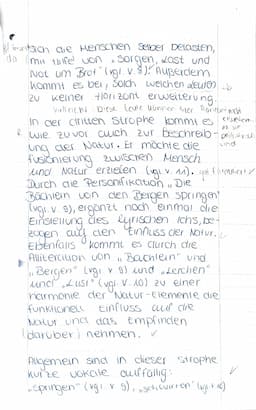 sich die Menschen selber belasten,
mit Hilfe von „Sorgen, Last und
Not um Brot" (vgl. V. 8). Außerdem
kommt es bei, solch weichen
zu keiner Horizont erweiterung.
vielleicht Diese Leute können hier
In der dritten Strophe kommt es
wie zuvor auch zur Beschreib-
ung der Natur. Er möchte die
Fusionierung zwischen Mensch
und Natur erzielen (vgl. V. 11).
Durch die Personifikation „Die
Bächlein von den Bergen springen"
(vgl. V. 9), ergänzt noch einmal die
Einstellung des Lyrischen Ichs, be-
zogen auf den Einfluss der Natur.
Ebenfalls kommt es durch die
Alliteration von „Bächlein" und
„Bergen" (vgl. V. 9) und „Lerchen"
und „Lust" (vgl. V. 10) zu einer
Harmonie der Natur-Elemente, die
funktionell Einfluss auf die
Natur und das Empfinden
(darüber) nehmen.
Allgemein sind in dieser Strophe
kurze Vokale auffällig:
„springen" (vgl. V. 9), „schwirren" (vgl. V. 10)